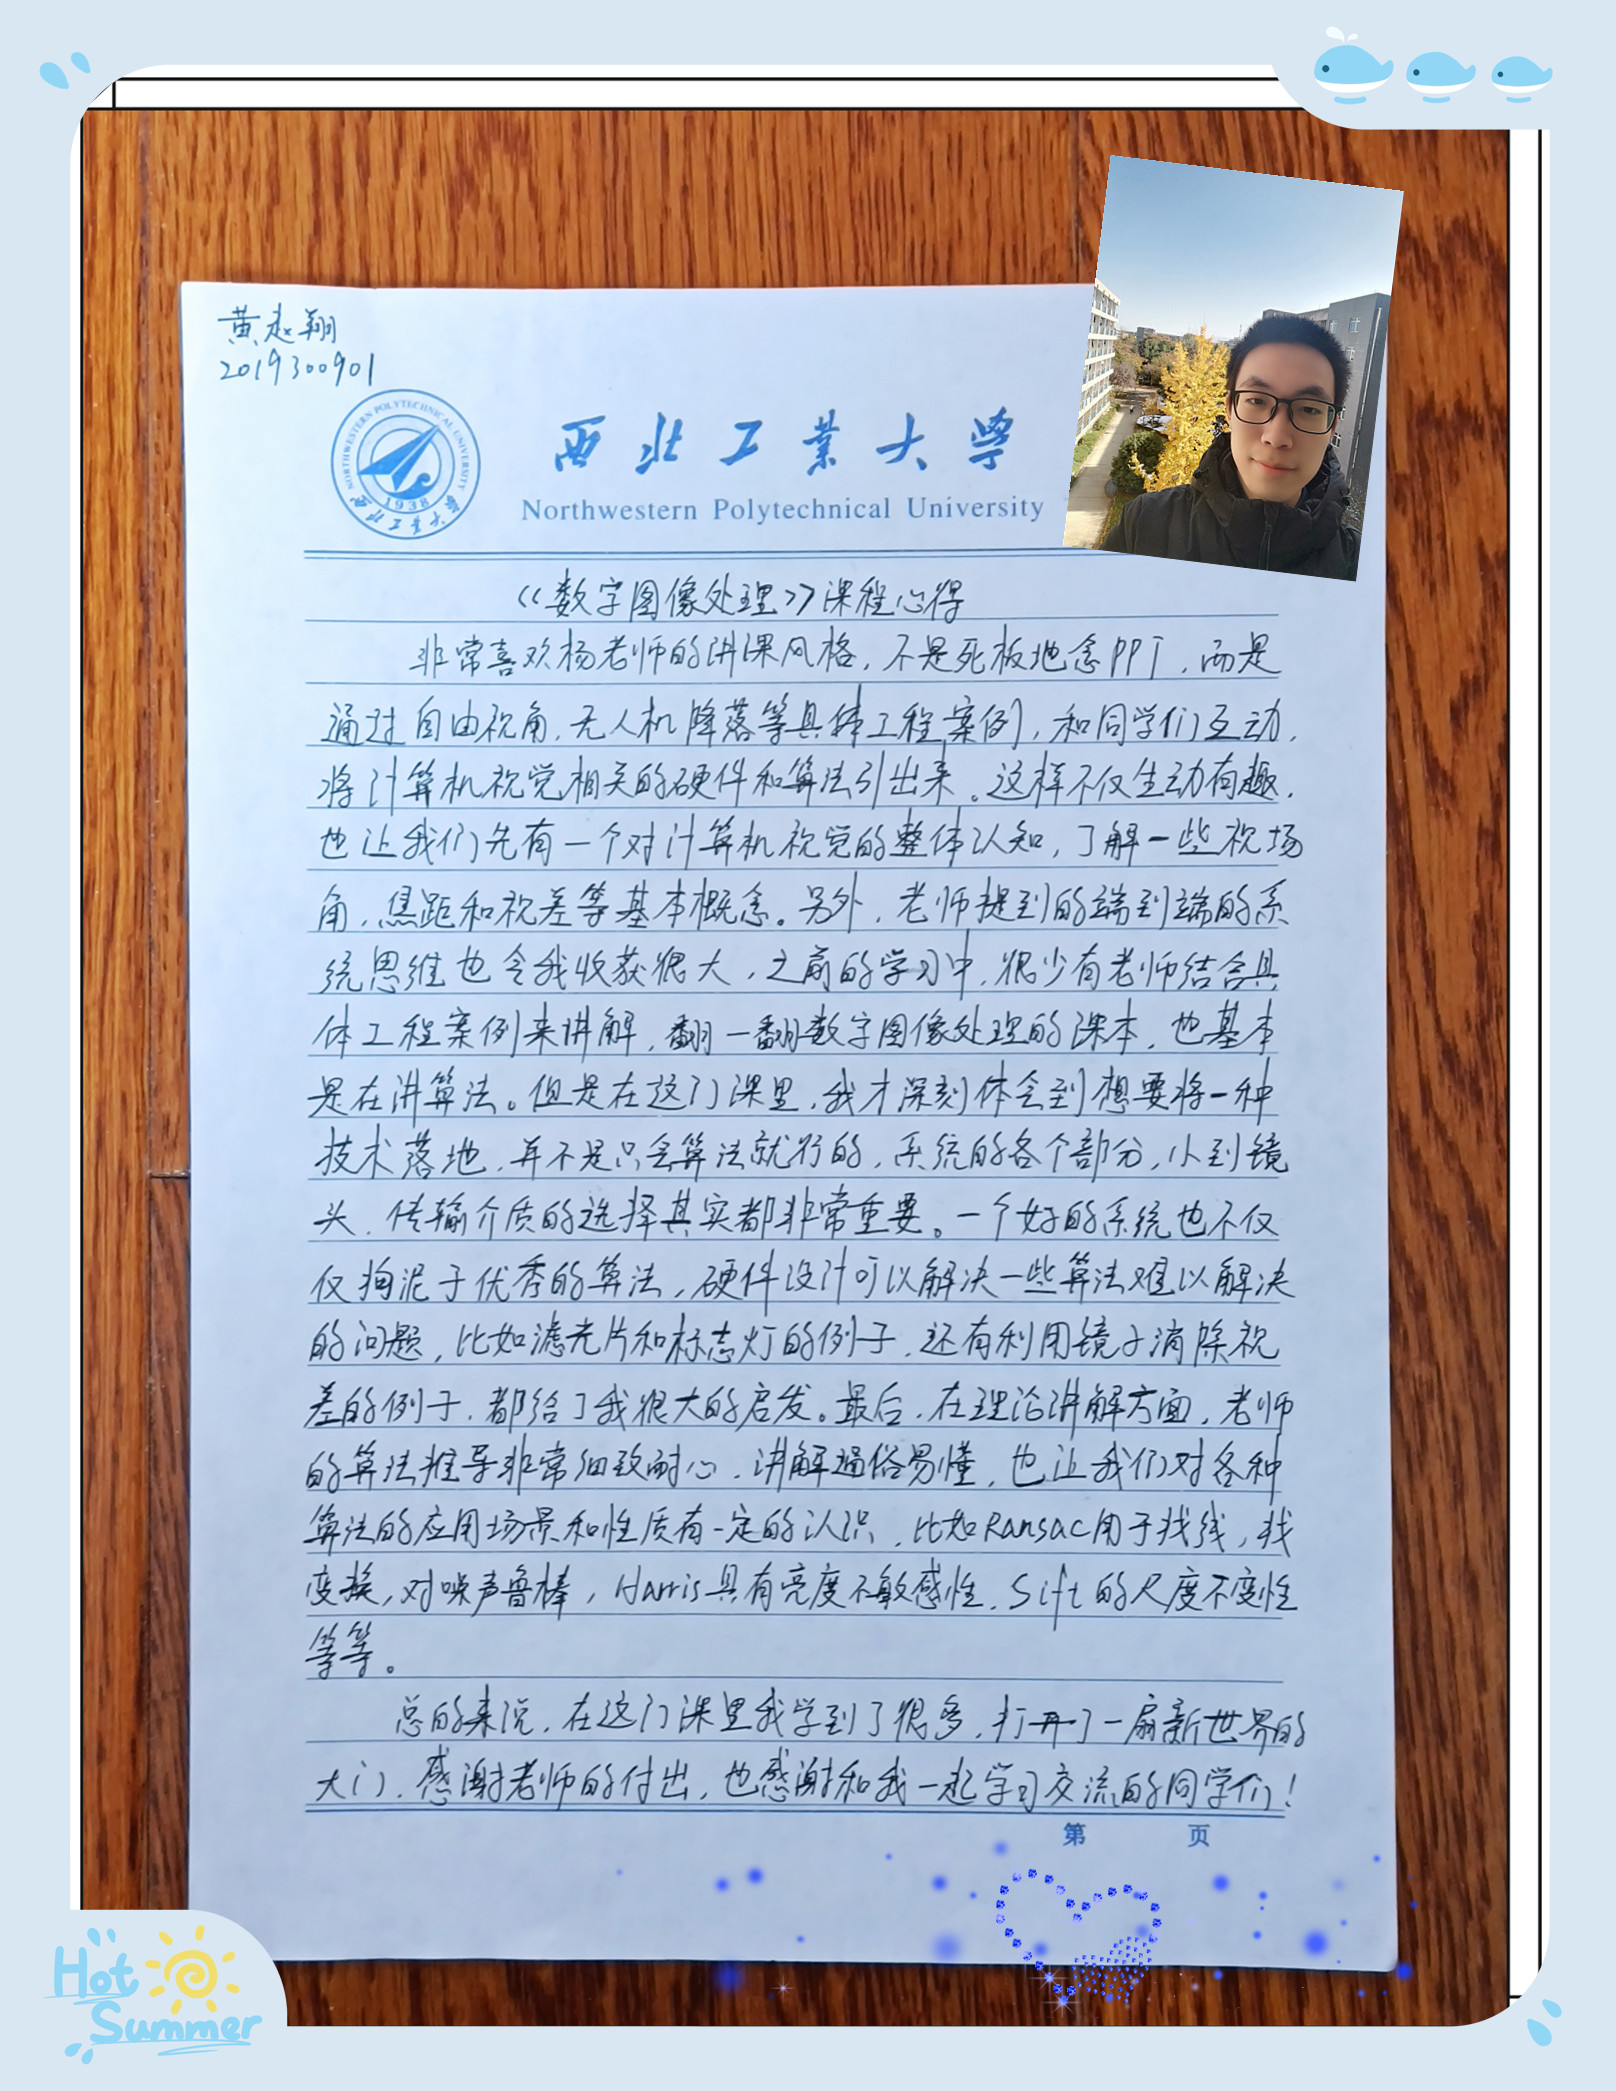 黄赵翔
2019300901
NORTHWESTERN POLYTECHNICAL UNIVERSITY
1938
西北工业大学
西北工业大学
Northwestern Polytechnical University
《数字图像处理》课程心得
非常喜欢杨老师的讲课风格，不是死板地念PPT，而是
通过自由视角、无人机降落等具体工程案例，和同学们互动，
将计算机视觉相关的硬件和算法引出来。这样不仅生动有趣，
也让我们先有一个对计算机视觉的整体认知，了解一些视场
角、焦距和视差等基本概念。另外，老师提到的端到端的系
统思维也令我收获很大，之前的学习中，很少有老师结合具
体工程案例来讲解，翻一翻数字图像处理的课本，也基本
是在讲算法。但是在这门课里，我才深刻体会到想要将一种
技术落地，并不是只会算法就行的，系统的各个部分，从到镜
头、传输介质的选择其实都非常重要。一个好的系统也不仅
仅拘泥于优秀的算法，硬件设计可以解决一些算法难以解决
的问题，比如滤光片和标志灯的例子，还有利用镜子消除视
差的例子，都给了我很大的启发。最后，在理论讲解方面，老师
的算法推导非常细致耐心，讲解通俗易懂，也让我们对各种
算法的应用场景和性质有一定的认识，比如Ransac用于找线，找
变换，对噪声鲁棒，Harris具有亮度不敏感性，Sift的尺度不变性
等等。
总的来说，在这门课里我学到了很多，打开了一扇新世界的
大门，感谢老师的付出，也感谢和我一起学习交流的同学们！
第 页
Hot
Summer